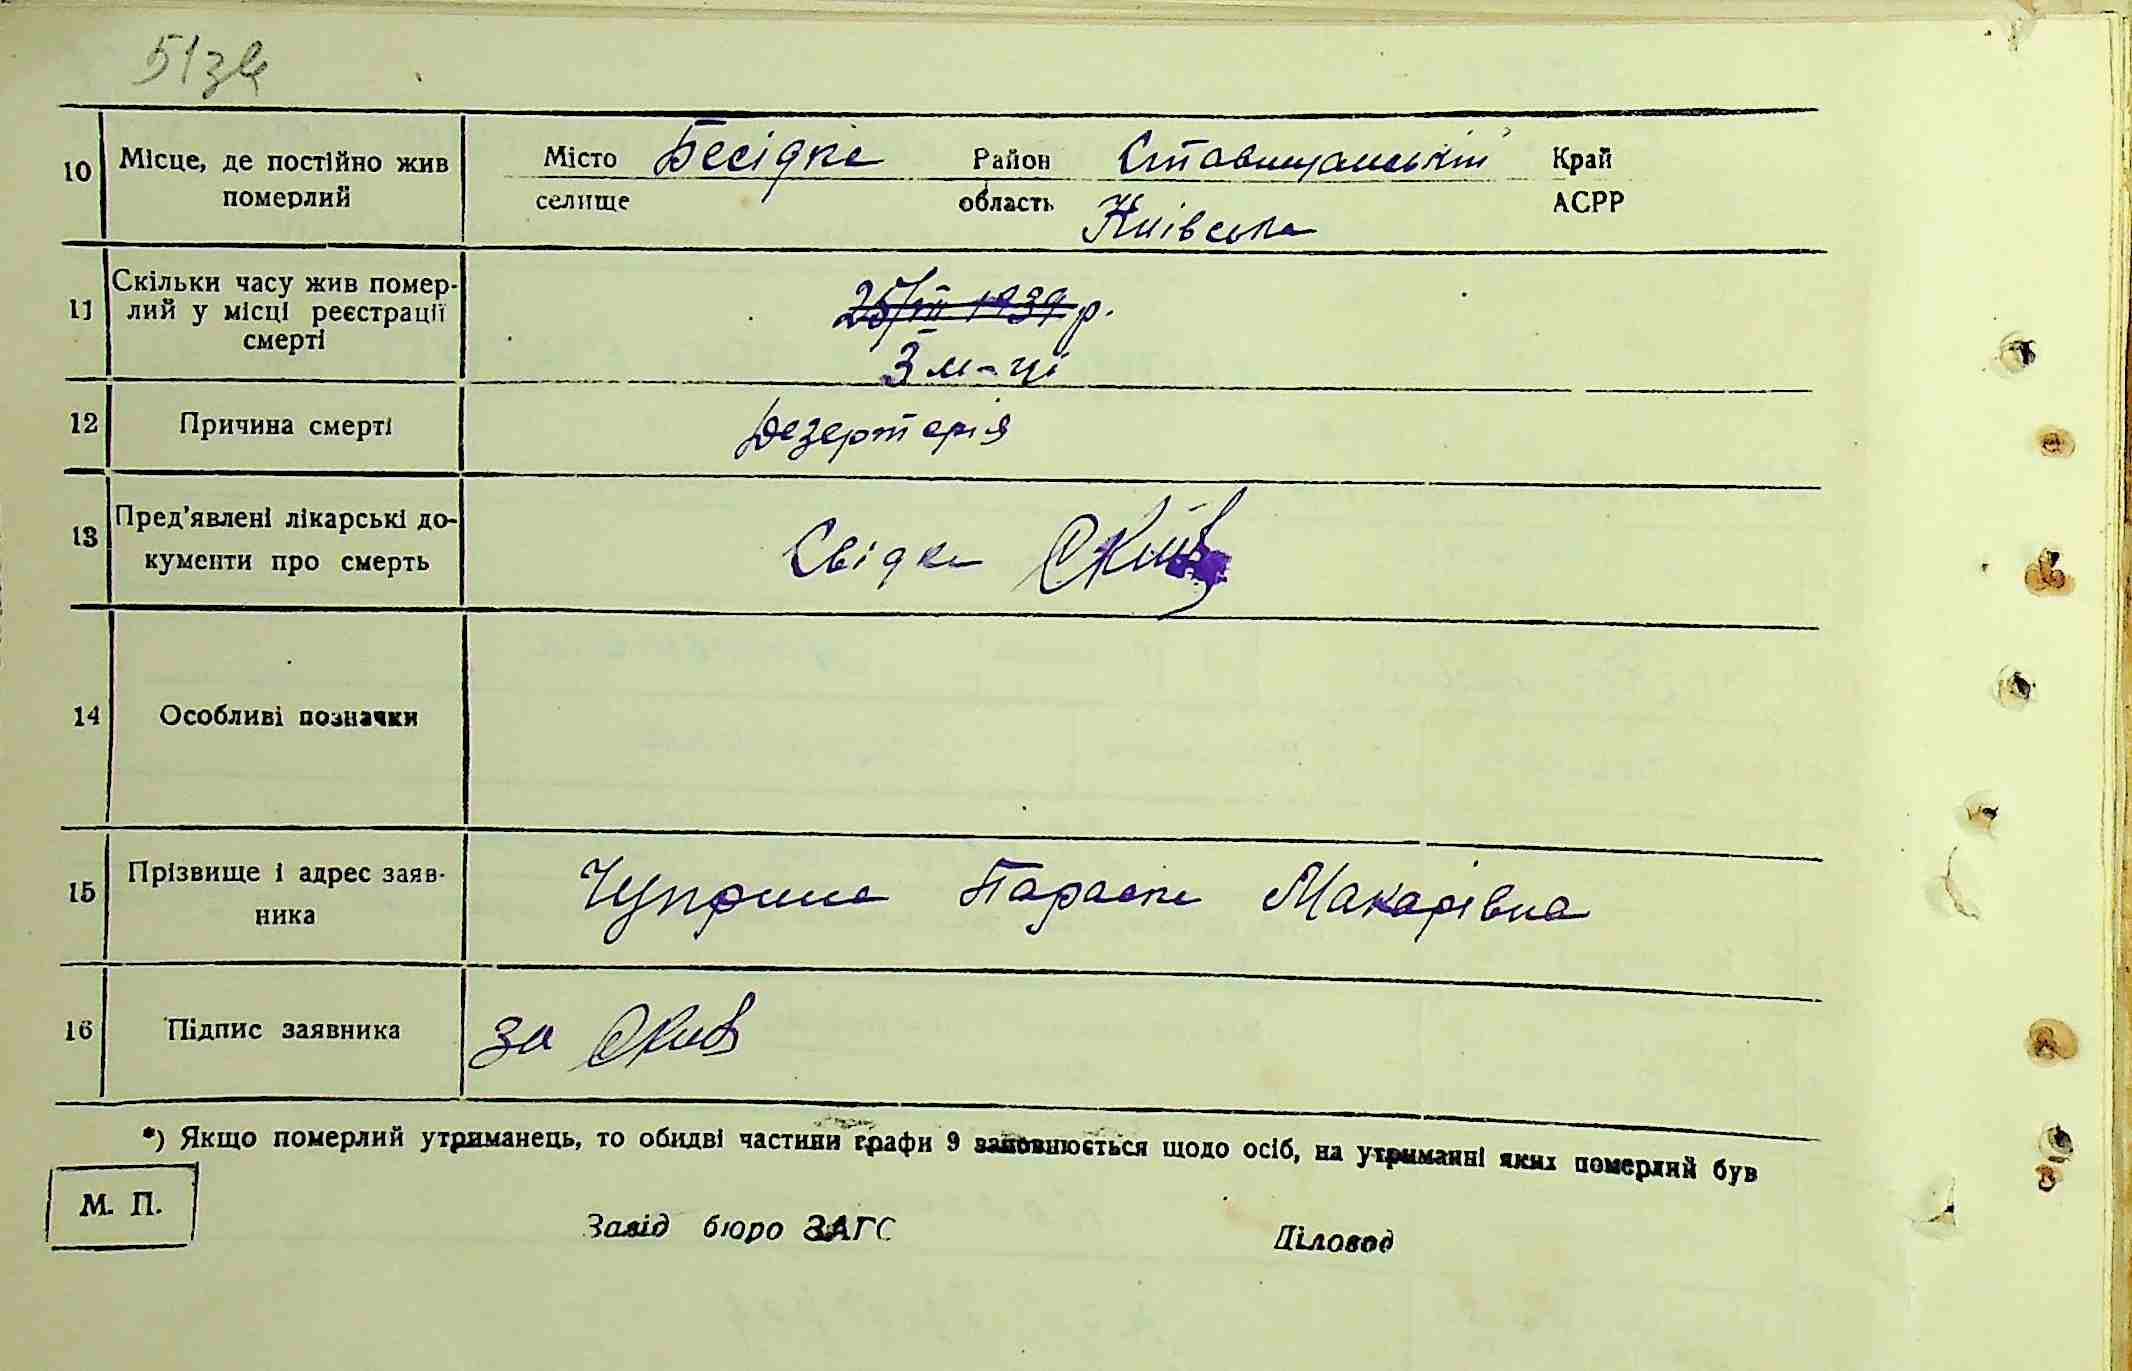 51зв
10 Місце, де постійно жив померлий Місто Бесідка Район Ставищанський Край
селище область Київська АСРР
11 Скільки часу жив помер-
лий у місці реєстрації
смерті
25/III 1939 р.
3 м-ці
12 Причина смерті Дезертерія
13 Пред'явлені лікарські до-
кументи про смерть
Свідки
14 Особливі позначки
15 Прізвище і адрес заяв-
ника
Чуприна Параска Макарівна
16 Підпис заявника за
*) Якщо померлий утриманець, то обидві частини графи 9 заповнюється щодо осіб, на утриманні яких померлий був
М. П.
Завід бюро ЗАГС Діловод